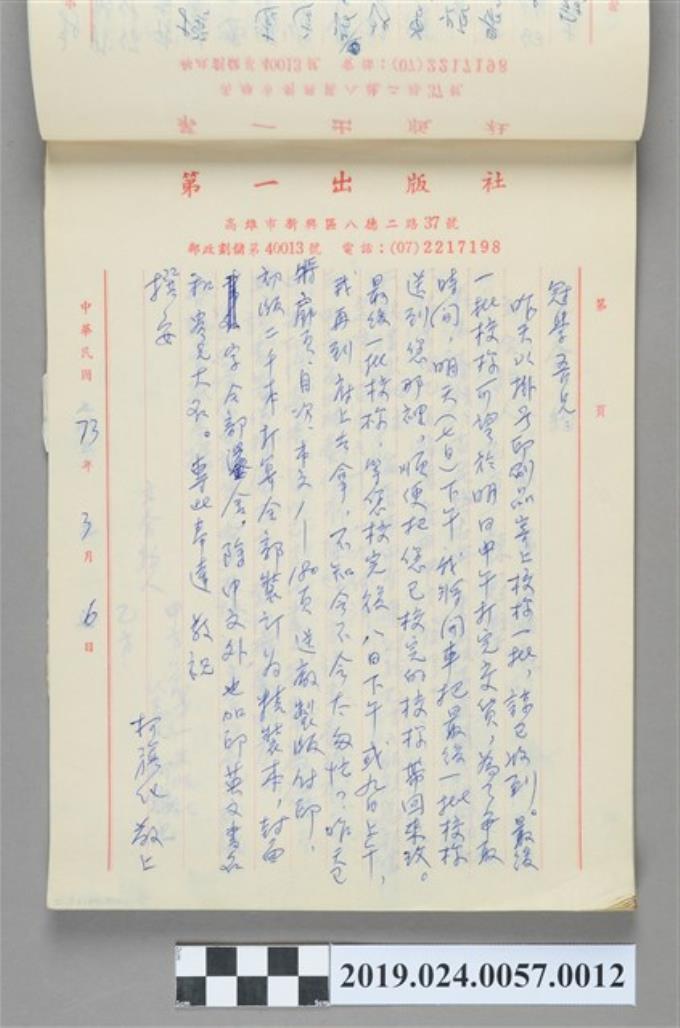 第一出版社
高雄市新興區八德二路37號
郵政劃儲第40013號 電話:(07)2217198
第 頁
冠學吾兄:
昨天以掛號印刷品寄上校稿一批,諒已收到。最後
一批校稿可望於明日中午打完交貨,為了爭取
時間,明天(七日)下午我將開車把最後一批校稿
送到您那裡,順便把您已校完的校稿帶回來改。
最後一批校稿,等您校完後八日下午或九日上午,
我再到府上去拿,不知會不會太匆忙?昨天已
將扉頁、目次、本文1—180頁送廠製版付印,
初版二千本打算全部裝訂為精裝本,封面
字全部燙金,除中文外,也加印英文書名
和貴兄大名。專此奉達 敬祝
撰安
柯旗化敬上
中華民國73年3月6日
2019.024.0057.0012